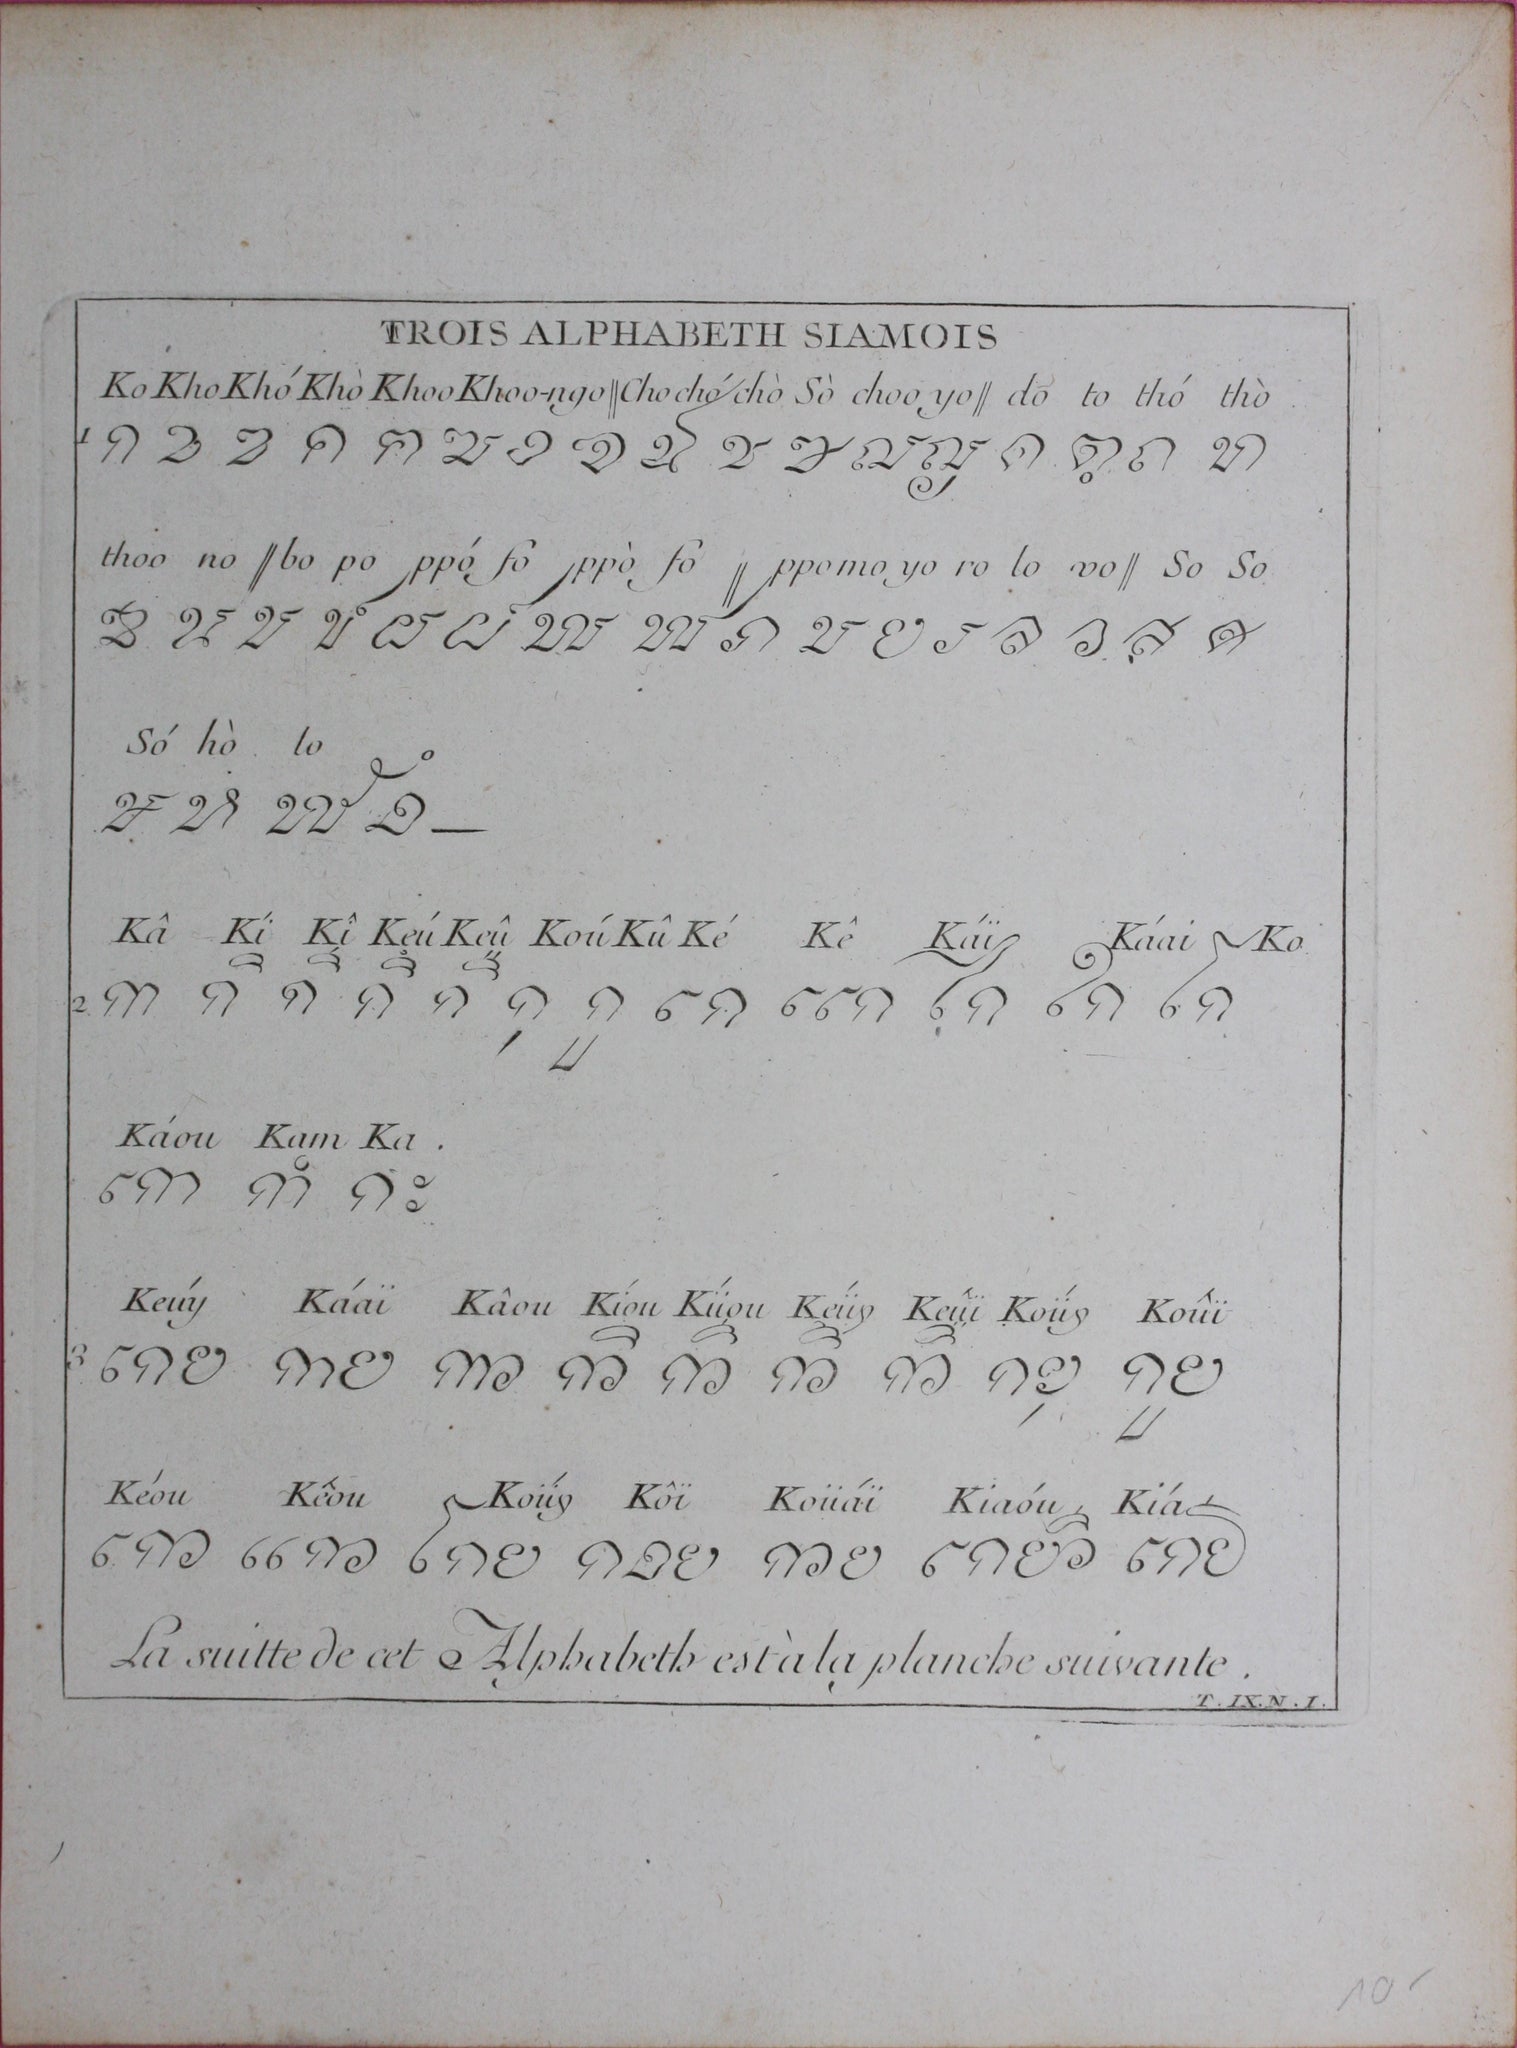 TROIS ALPHABETH SIAMOIS
Ko Kho Khó Khò Khoo Khoo-ngo || Cho chó chò Sò choo yo || do to thó thò
1 ก ข ฃ ค ฅ ฆ ง จ ฉ ช ซ
thoo no || bo po ppó fó ppò fô || ppo mo yo ro lo vo || So So
ธ น บ ป ผ ฝ พ ฟ ภ ม ย ร ล ว ส ศ
Só hò lo
ษ ห
Kâ Kí Kî Keú Keû Koú Kû Ké Kê Káï Káai Ko
2 กา กิ กี กึ กื กุ กู เก แก ไก ใก โก
Káou Kam Ka.
เกา กำ กะ
Keúy Káaï Kâou Kíou Kíïou Keúÿ Keûï Koúÿ Koûï
3 เกย กาย กาว กิว กีว กึว กืว กุย กูย
Kéou Kêou Koúÿ Kôï Koüáï Kiaóu Kiá
เกว แกว โกย กอย กวย เกยว เกย
La suitte de cet Alphabeth est à la planche suivante.
T. IX. N. I.
10